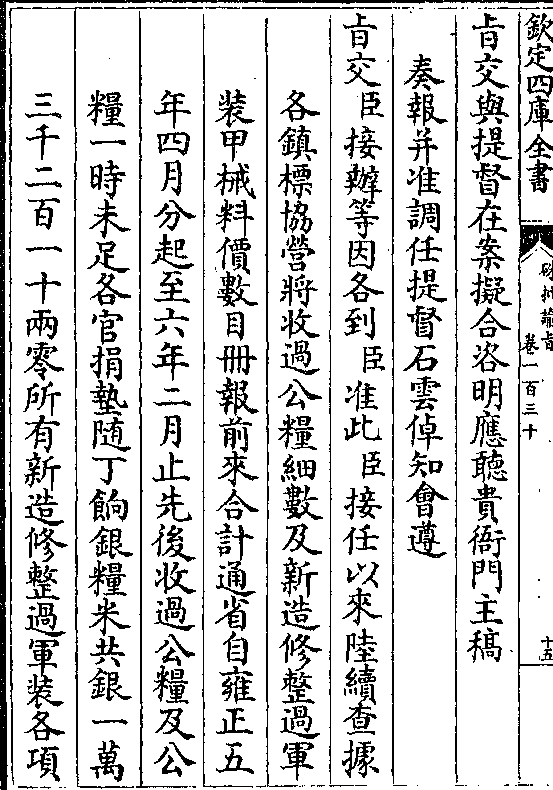 欽定四庫全書
硃批諭旨
卷一百三十
十五
旨交與提督在案擬合咨明應聽貴衙門主稿
奏報并准調任提督石雲倬知會遵
旨交臣接辦等因各到臣准此臣接任以來陸續查據
各鎮標協營將收過公糧細數及新造修整過軍
裝甲械料價數目冊報前來合計通省自雍正五
年四月分起至六年二月止先後收過公糧及公
糧一時未足各官捐墊随丁餉銀糧米共銀一萬
三千二百一十兩零所有新造修整過軍装各項